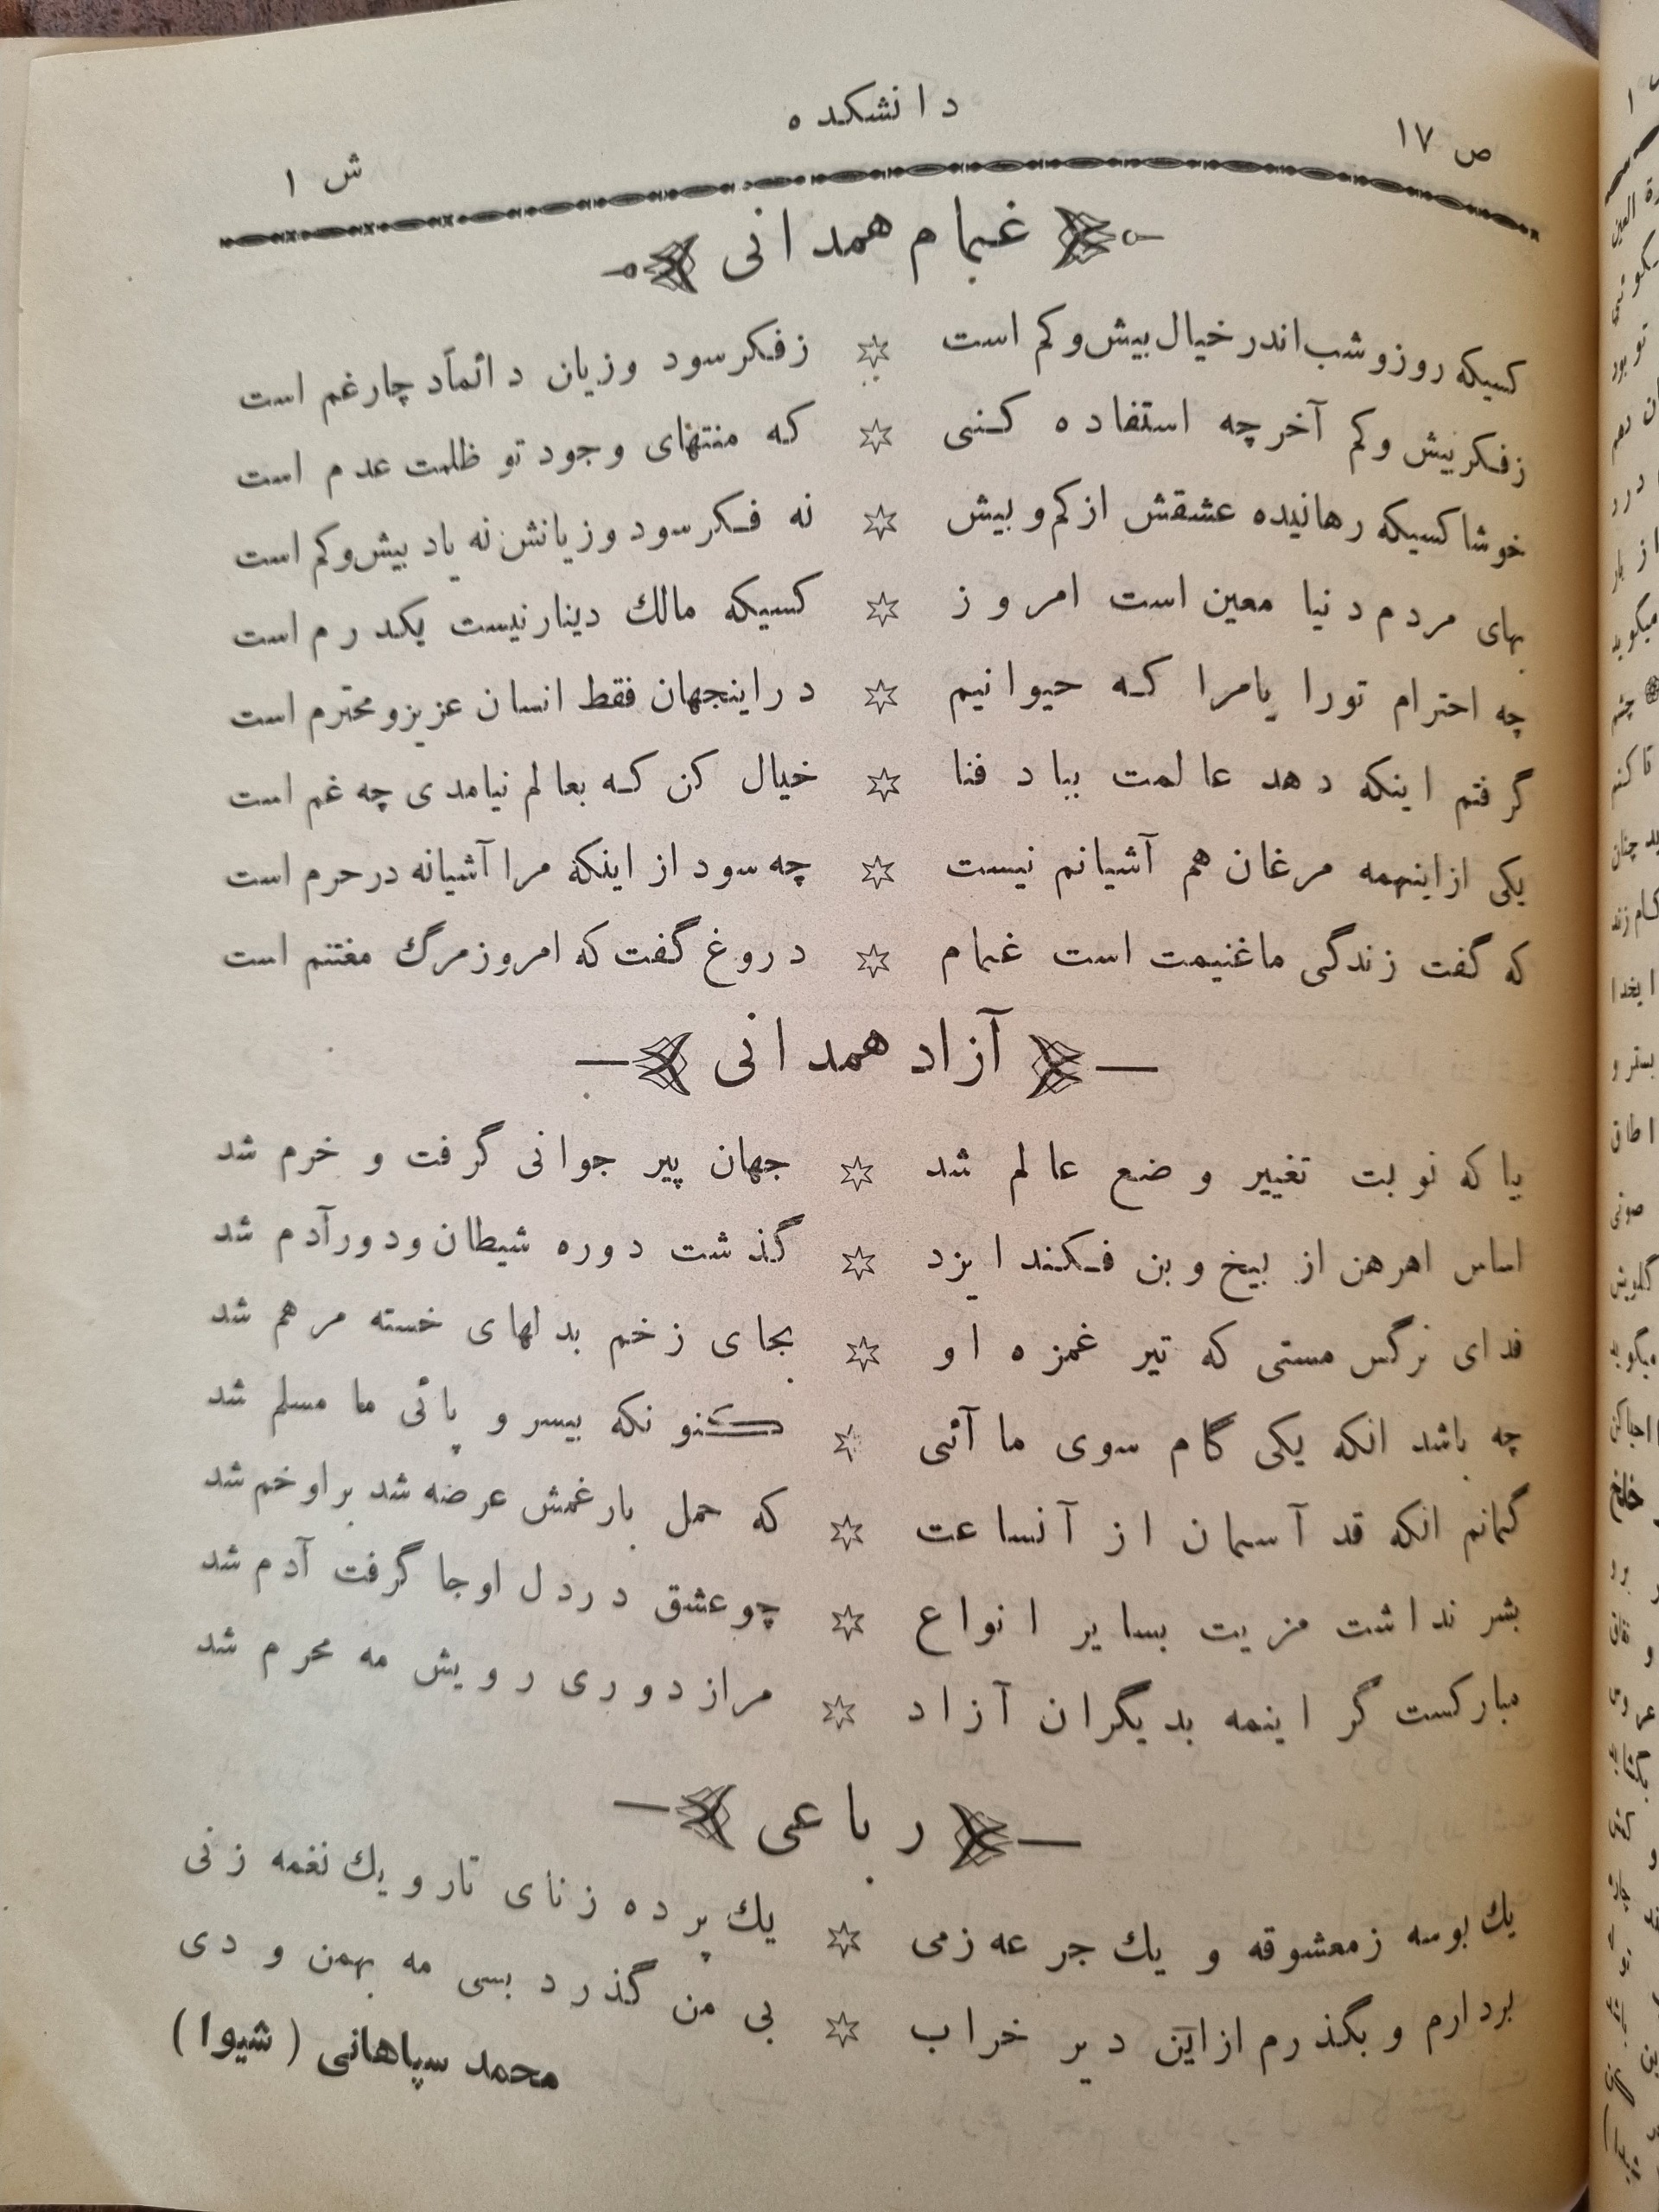 ص ۱۷
دانشکده
ش ۱
غمام همدانی
کسیکه روز و شب اندر خیال بیش و کم است ☆ ز فکر سود و زیان دائماً دچار غم است
ز فکر بیش و کم آخر چه استفاده کنی ☆ که منتهای وجود تو ظلمت عدم است
خوشا کسیکه رهانیده عشقش از کم و بیش ☆ نه فکر سود و زیانش نه یاد بیش و کم است
بهای مردم دنیا معین است امروز ☆ کسیکه مالك دینار نیست یکدرم است
چه احترام تورا یا مرا که حیوانیم ☆ در اینجهان فقط انسان عزیز و محترم است
گرفتم اینکه دهد عالمت بباد فنا ☆ خیال کن که بعالم نیامدی چه غم است
یکی از اینهمه مرغان هم آشیانم نیست ☆ چه سود از اینکه مرا آشیانه در حرم است
که گفت زندگی ما غنیمت است غمام ☆ دروغ گفت که امروز مرگ مغتنم است
آزاد همدانی
بیا که نوبت تغییر وضع عالم شد ☆ جهان پیر جوانی گرفت و خرم شد
اساس اهرهن از بیخ و بن فکند ایزد ☆ گذشت دوره شیطان و دور آدم شد
فدای نرگس مستی که تیر غمزه او ☆ بجای زخم بدلهای خسته مرهم شد
چه باشد انکه یکی گام سوی ما آئی ☆ کنونکه بیسر و پائی ما مسلم شد
گمانم انکه قد آسمان از آنساعت ☆ که حمل بار غمش عرضه شد بر او خم شد
بشر نداشت مزیت بسایر انواع ☆ چو عشق در دل او جا گرفت آدم شد
مبارکست گر اینمه بدیگران آزاد ☆ مرا از دوری رویش مه محرم شد
رباعی
یك بوسه ز معشوقه و یك جرعه ز می ☆ یك پرده ز نای تار و یك نغمه ز نی
بردارم و بگذرم از این دیر خراب ☆ بی من گذرد بسی مه بهمن و دی
محمد سپاهانی (شیوا)